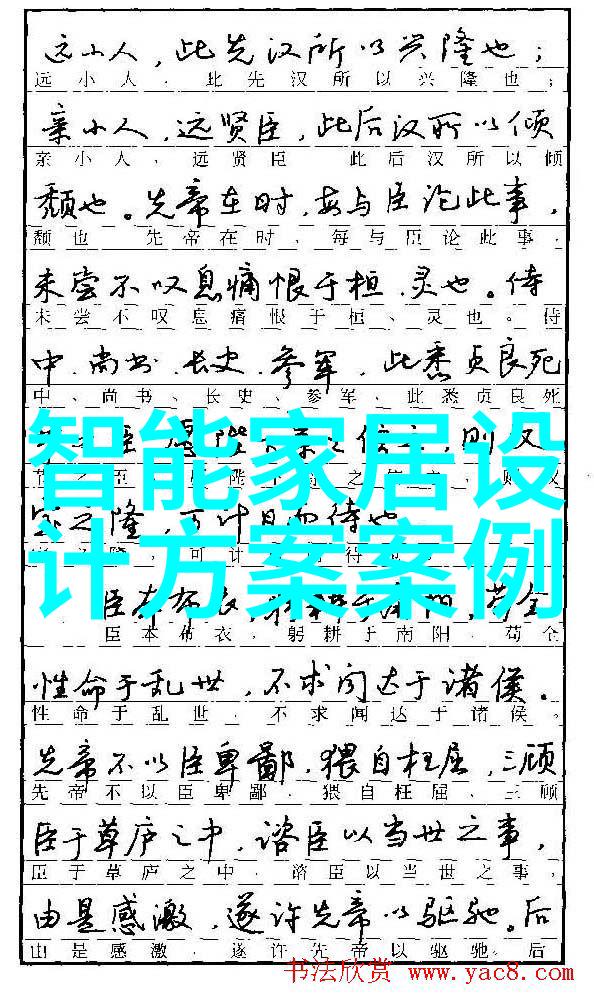 远小人，此先汉所以兴隆也；
远小人，此先汉所以兴隆也；
亲小人，远贤臣，此后汉所以倾
亲小人，远贤臣 此后汉所以倾
颓也。先帝在时，每与臣论此事，
颓也 先帝在时，每与臣论此事，
未尝不叹息痛恨于桓、灵也。侍
未尝不叹息痛恨于桓、灵也。侍
中、尚书、长史、参军，此悉贞良死
中、尚书、长史、参军，此悉贞良死
智能家居设
计方案案例
臣 陛 之信之，则汉
臣 陛 之 之，则汉
室之隆，可计日而待也
隆，可计 待
臣本布衣，躬耕于南阳，苟全
臣本布衣，躬耕于南阳，苟全
性命于乱世，不求闻达于诸侯。
性命于乱世，不求闻达于诸侯。
先帝不以臣卑鄙，猥自枉屈，三顾
先帝不以臣卑鄙，猥自枉屈、三顾
臣于草庐之中，谘臣以当世之事，
臣于草庐之中，谘臣以当世之事，
由是感激，遂许先帝以驱驰。后
由是感激，遂许先帝以驱驰。后
书法欣赏 www.yac8.com